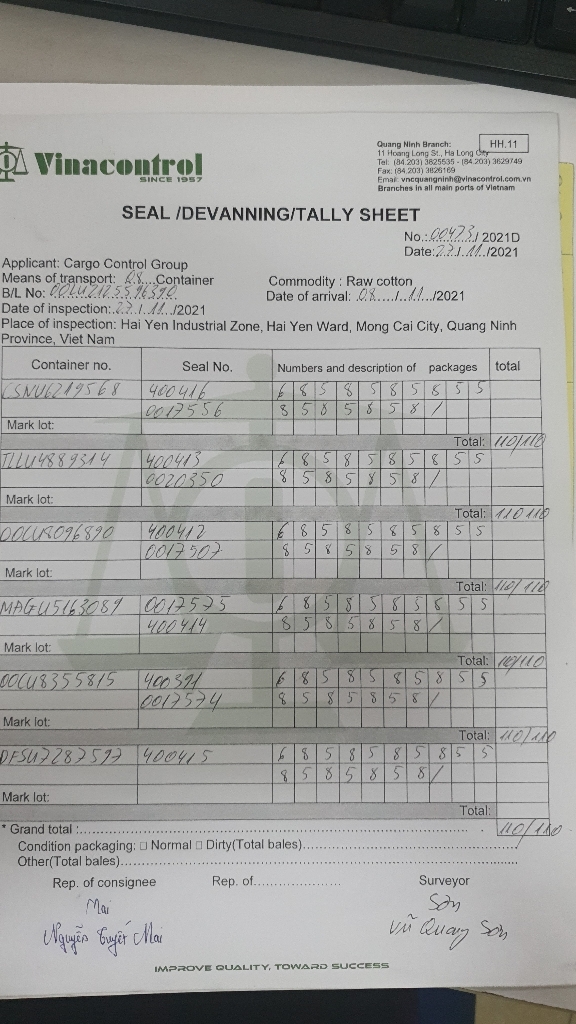 Vinacontrol
SINCE 1957
Quang Ninh Branch:
HH.11
11 Hoang Long St., Ha Long City
Tel: (84.203) 3825535 - (84.203) 3629749
Fax: (84.203) 3826169
Email: vncquangninh@vinacontrol.com.vn
Branches in all main ports of Vietnam
SEAL /DEVANNING/TALLY SHEET
No.:00473/ 2021D
Date:27/.11./2021
Applicant: Cargo Control Group
Means of transport: 08....Container
Commodity : Raw cotton
B/L No:
Date of arrival: .08...../..11../2021
Date of inspection:.27./.11./2021
Place of inspection: Hai Yen Industrial Zone, Hai Yen Ward, Mong Cai City, Quang Ninh
Province, Viet Nam
Container no. Seal No. Numbers and description of packages total
CSNU6219568 400416 6 8 5 8 5 8 5 8 5 5
0017556 8 5 8 5 8 5 8 /
Mark lot:
Total: 110/110
TLLU4889314 400413 6 8 5 8 5 8 5 8 5 5
0020350 8 5 8 5 8 5 8 /
Mark lot:
Total: 110 110
OOCU8096890 400412 6 8 5 8 5 8 5 8 5 5
0017507 8 5 8 5 8 5 8 /
Mark lot:
Total: 110/110
MAGU5163089 0017575 6 8 5 8 5 8 5 8 5 5
400414 8 5 8 5 8 5 8 /
Mark lot:
Total: 110/110
OOCU8355815 400391 6 8 5 8 5 8 5 8 5 5
0017574 8 5 8 5 8 5 8 /
Mark lot:
Total: 110/110
DFSU7287597 400415 6 8 5 8 5 8 5 8 5 5
8 5 8 5 8 5 8 /
Mark lot:
Total:
* Grand total : 110/110
Condition packaging: □ Normal □ Dirty(Total bales)
Other(Total bales)
Rep. of consignee Rep. of Surveyor
Mai Sơn
Nguyễn Tuyết Mai Vũ Quang Sơn
IMPROVE QUALITY, TOWARD SUCCESS